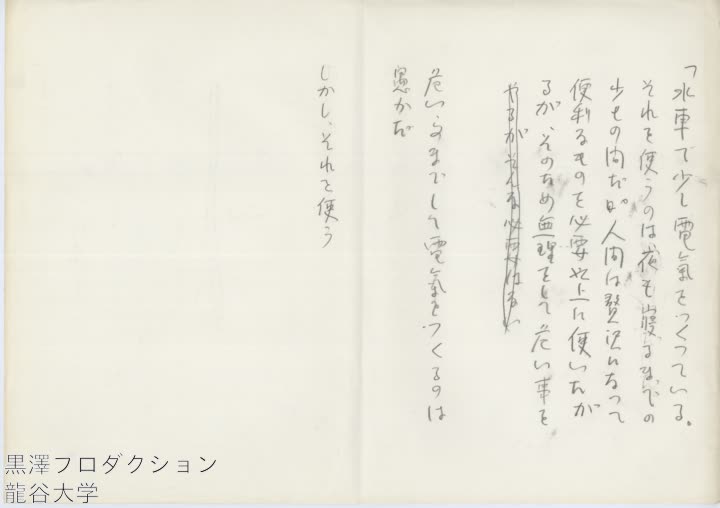 「水車で少し電氣をつくつている。
それを使うのは夜も寝るまでの
少しの間だが。人間は贅沢になって
便利なものを必要以上に使いたが
るが、そのため無理をして危い事を
やるがそんな必要はない
危い事までして電氣をつくるのは
愚かだ
しかし、それを使う
黒澤プロダクション
龍谷大学